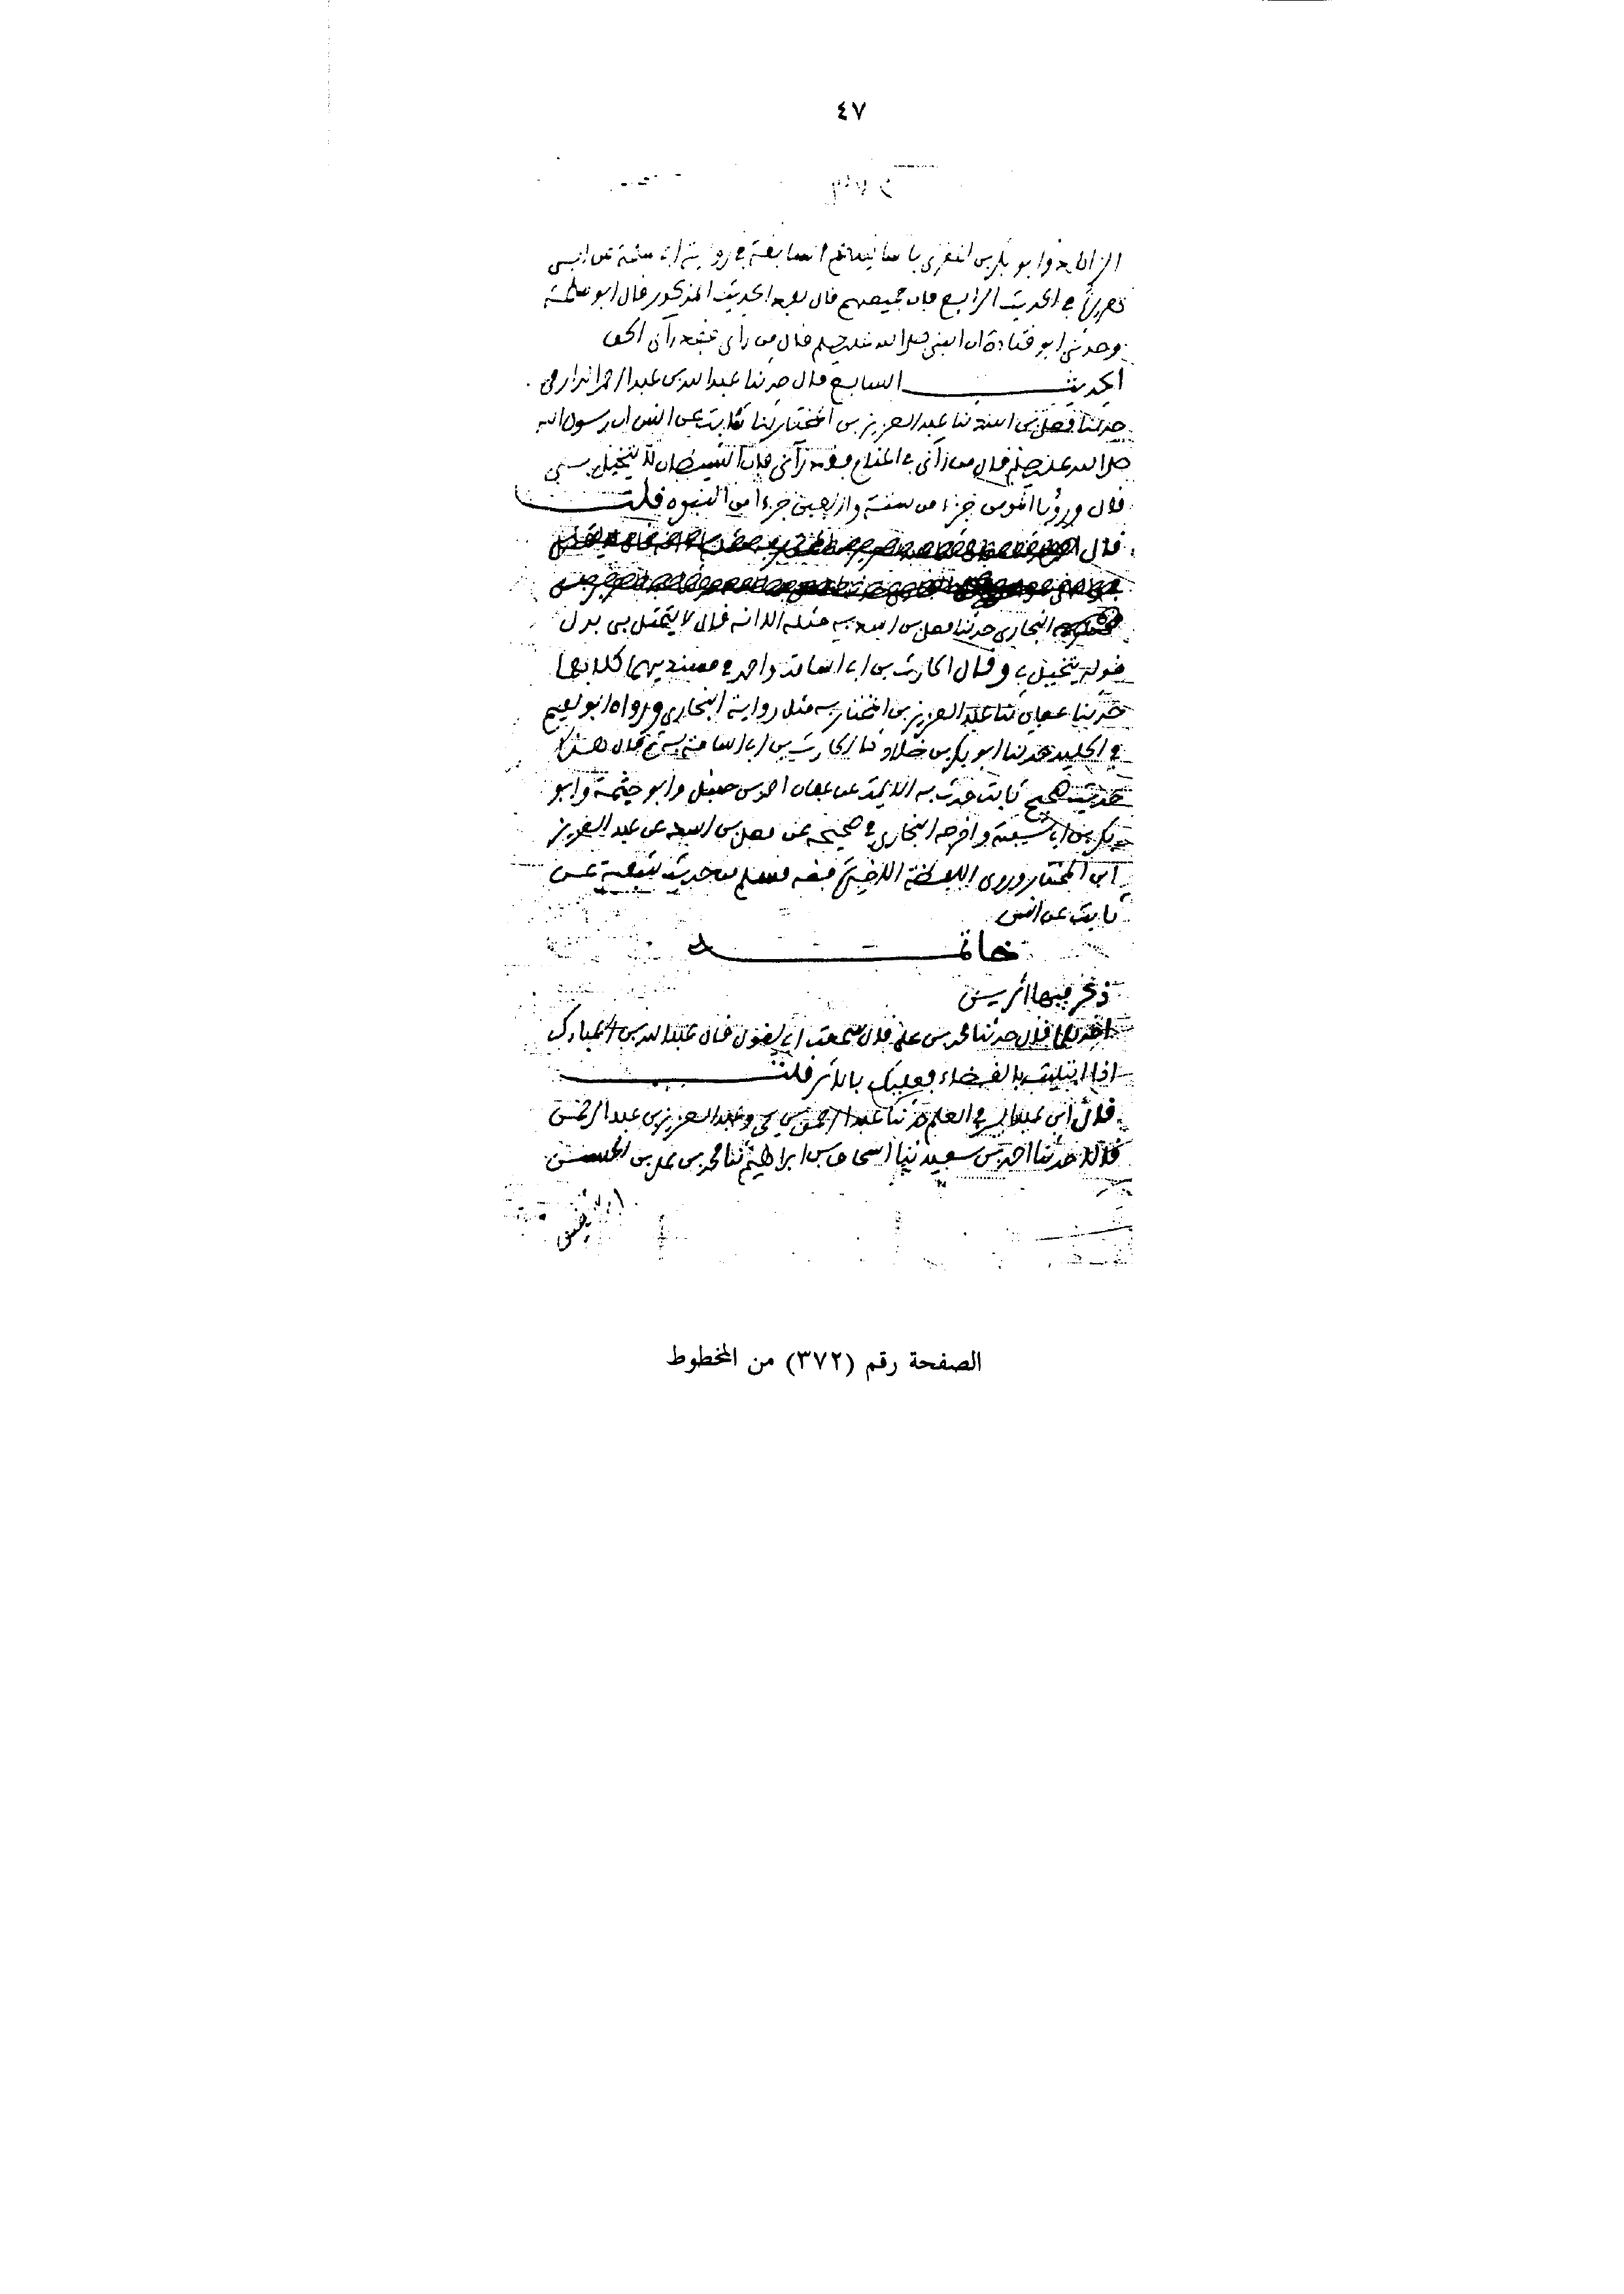 ٤٧
وابو بكر بن المقرى باسانيدهم السابقة في رواية ابى سلمة عن ابى
هريرة في الحديث الرابع فان جميعهم قال بعد الحديث المذكور قال ابو سلمة
وحدثني ابو قتادة ان النبي صلى الله عليه وسلم قال من رآنى فقد رآى الحق
الحديث السابع قال حدثنا عبد الله بن عبد الرحمن الدارمى
حدثنا معلى بن اسد ثنا عبد العزيز بن المختار ثنا ثابت عن انس ان رسول الله
صلى الله عليه وسلم قال من رآنى في المنام فقد رآنى فان الشيطان لا يتخيل بى
قال ورؤيا المومن جزء من ستة واربعين جزءا من النبوه قلت
قال
البخارى حدثنا معلى بن اسد به مثله الا انه قال لا يتمثل بى بدل
قوله يتخيل بى وقال الحارث بن ابى اسامة واحمد في مسنديهما كلاهما
حدثنا عفان ثنا عبد العزيز بن المختار به مثل رواية البخارى ورواه ابو نعيم
في الحلية حدثنا ابو بكر بن خلاد ثنا الحارث بن ابى اسامة به ثم قال هذا
حديث صحيح ثابت حدث به الايمة عن عفان احمد بن حنبل وابو خيثمة وابو
بكر بن ابى شيبة واخرجه البخارى في صحيحه عن معلى بن اسد عن عبد العزيز
ابن المختار وروى اللفظة الاخيرة منه مسلم من حديث شعبة عن
ثابت عن انس
خاتمــة
ذكر فيها اثرين
قال حدثنا محمد بن على قال سمعت ابى يقول قال عبد الله بن المبارك
اذا ابتليت بالقضاء فعليك بالاثر قلت
قال ابن عبد البر في العلم حدثنا عبد الرحمن بن يحيى وعبد العزيز بن عبد الرحمن
قالا حدثنا احمد بن سعيد ثنا اسحاق بن ابراهيم ثنا محمد بن على بن الحسن
ابن شقيق
الصفحة رقم (٣٧٢) من المخطوط